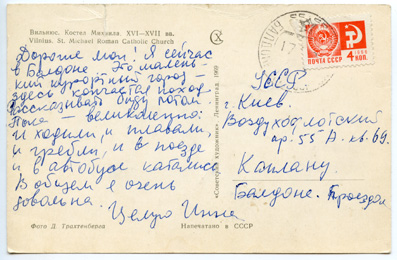 Вильнюс. Костел Михаила. XVI—XVII вв.
Vilnius. St. Michael Roman Catholic Church
Дорогие мои! Я сейчас
в Балдоне. Это малень
кий курортный город —
здесь кончается поход.
Рассказывать буду потом.
Пока — великолепно:
и ходили, и плавали,
и гребли, и в поезде
и в автобусе катались
В общем я очень
довольна. Целую Инна
Фото Д. Трахтенберга
Напечатано в СССР
«Советский художник» Ленинград 1969
ПОЧТА СССР
4
КОП.
УССР
г. Киев.
Воздухофлотский
пр. 55 А. кв. 69.
Каплану.
Балдоне. Проездом